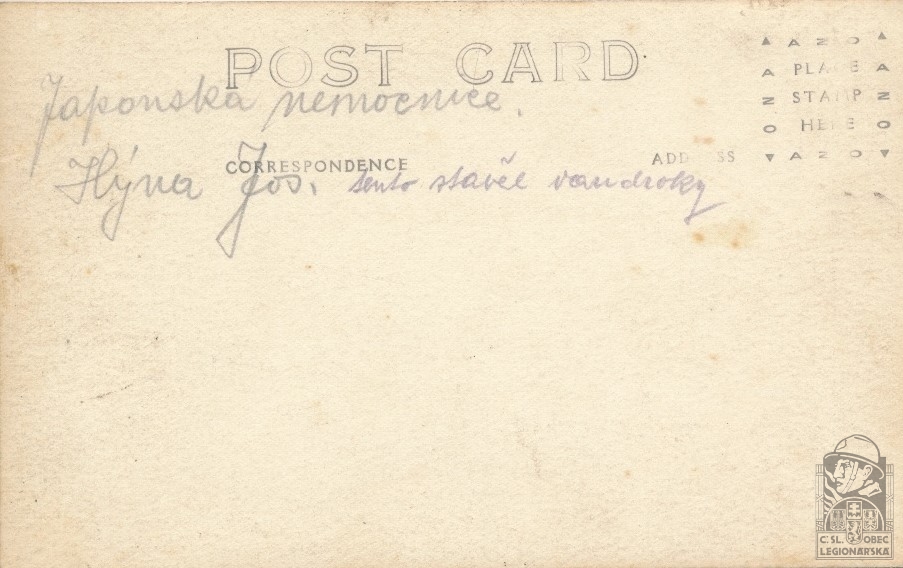 POST CARD
Japonská nemocnice.
CORRESPONDENCE
ADD SS
Hýna Jos. tento stavěl vandroky
▲ A Z O ▲
A PLACE A
Z STAMP Z
O HERE O
▼ A Z O ▼
Č. SL. OBEC
LEGIONÁŘSKÁ